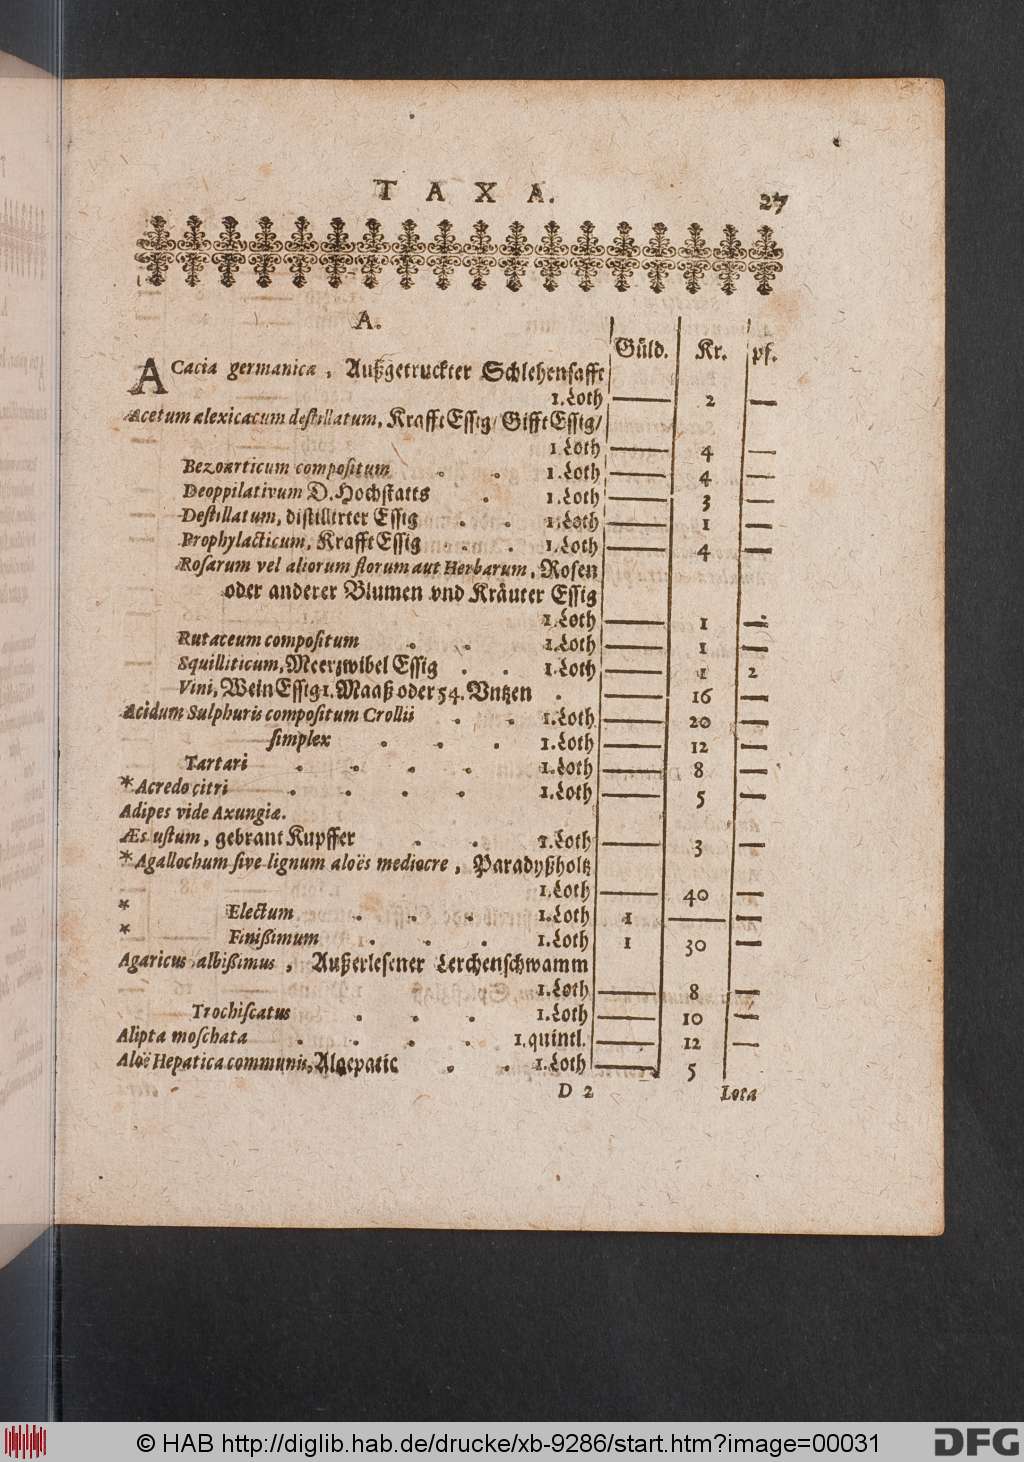 TAXA. 27
A.
Güld. Kr. pf.
ACacia germanica, Außgetruckter Schlehensafft
1.Loth — 2 —
Acetum alexicacum destillatum, KrafftEssig/ GifftEssig/
1.Loth — 4 —
Bezoarticum compositum . . 1.Loth — 4 —
Deoppilativum D.Hochstatts . 1.Loth — 3 —
Destillatum, distillirter Essig . . 1.Loth — 1 —
Prophylacticum, KrafftEssig . . 1.Loth — 4 —
Rosarum vel aliorum florum aut Herbarum, Rosen
oder anderer Blumen vnd Kräuter Essig
1.Loth — 1 —
Rutaceum compositum . . 1.Loth — 1 —
Squilliticum, Meerzwibel Essig . . 1.Loth — 1 2
Vini, WeinEssig 1. Maaß oder 54. Vntzen . — 16 —
Acidum Sulphuris compositum Crollii . . 1.Loth — 20 —
simplex . . . 1.Loth — 12 —
Tartari . . . . 1.Loth — 8 —
*Acredo citri . . . . 1.Loth — 5 —
Adipes vide Axungiæ.
Æs ustum, gebrant Kupffer . . 1.Loth — 3 —
*Agallochum sive lignum aloës mediocre, Paradyßholtz
1.Loth — 40 —
* Electum . . . 1.Loth 1 — —
* Finißimum . . . 1.Loth 1 30 —
Agaricus albißimus, Außerlesener Lerchenschwamm
1.Loth — 8 —
Trochiscatus . . . 1.Loth — 10 —
Alipta moschata . . . . 1.quintl. — 12 —
Aloë Hepatica communis, Aloepatic . . 1.Loth — 5
D 2 Lota
© HAB http://diglib.hab.de/drucke/xb-9286/start.htm?image=00031
DFG